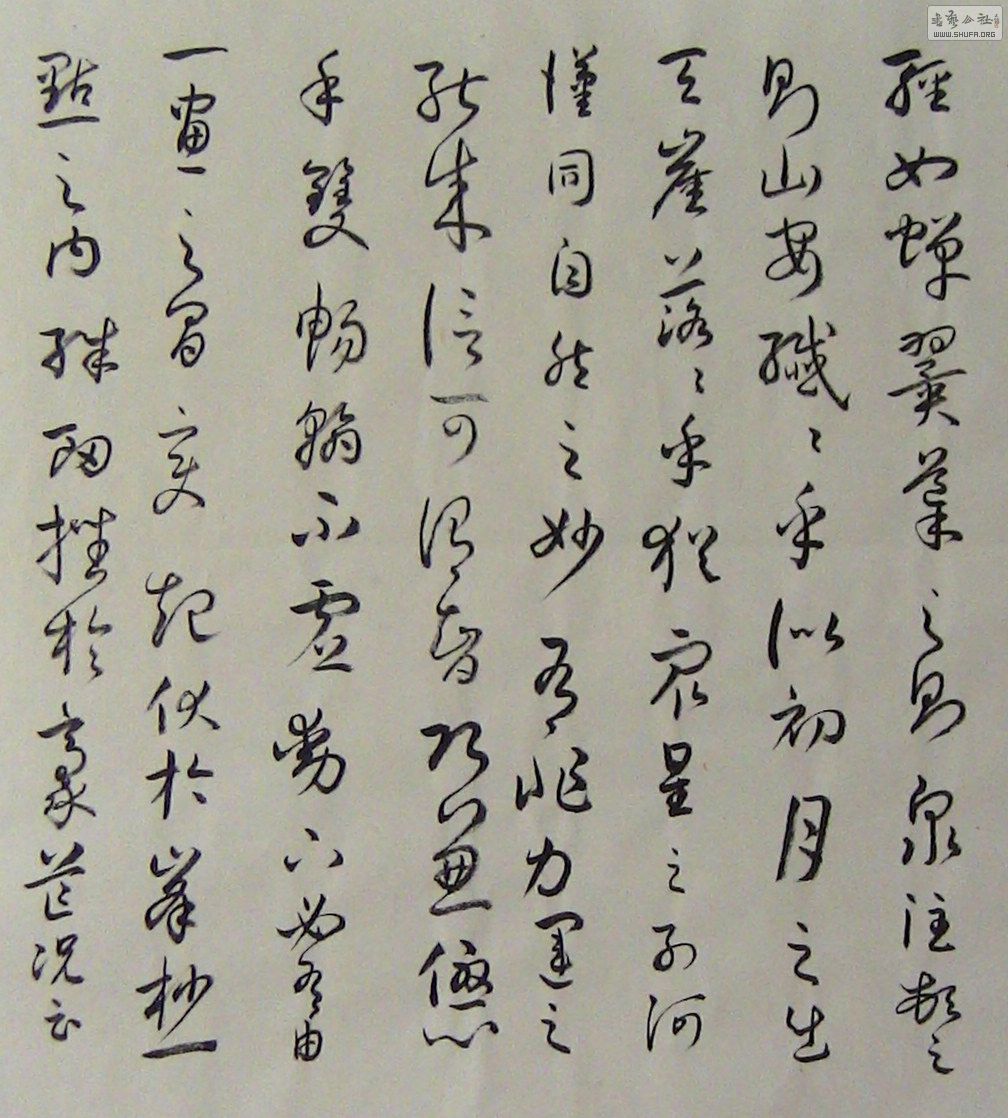 書藝公社
WWW.SHUFA.ORG
輕如蟬翼導之則泉注頓之
則山安纖〻乎似初月之出
天崖落〻乎猶眾星之列河
漢同自然之妙有非力運之
能成信可謂智巧兼優心
手雙暢翰不虛動下必有由
一畫之間變起伏於峯杪一
點之內殊衄挫於豪芒況云